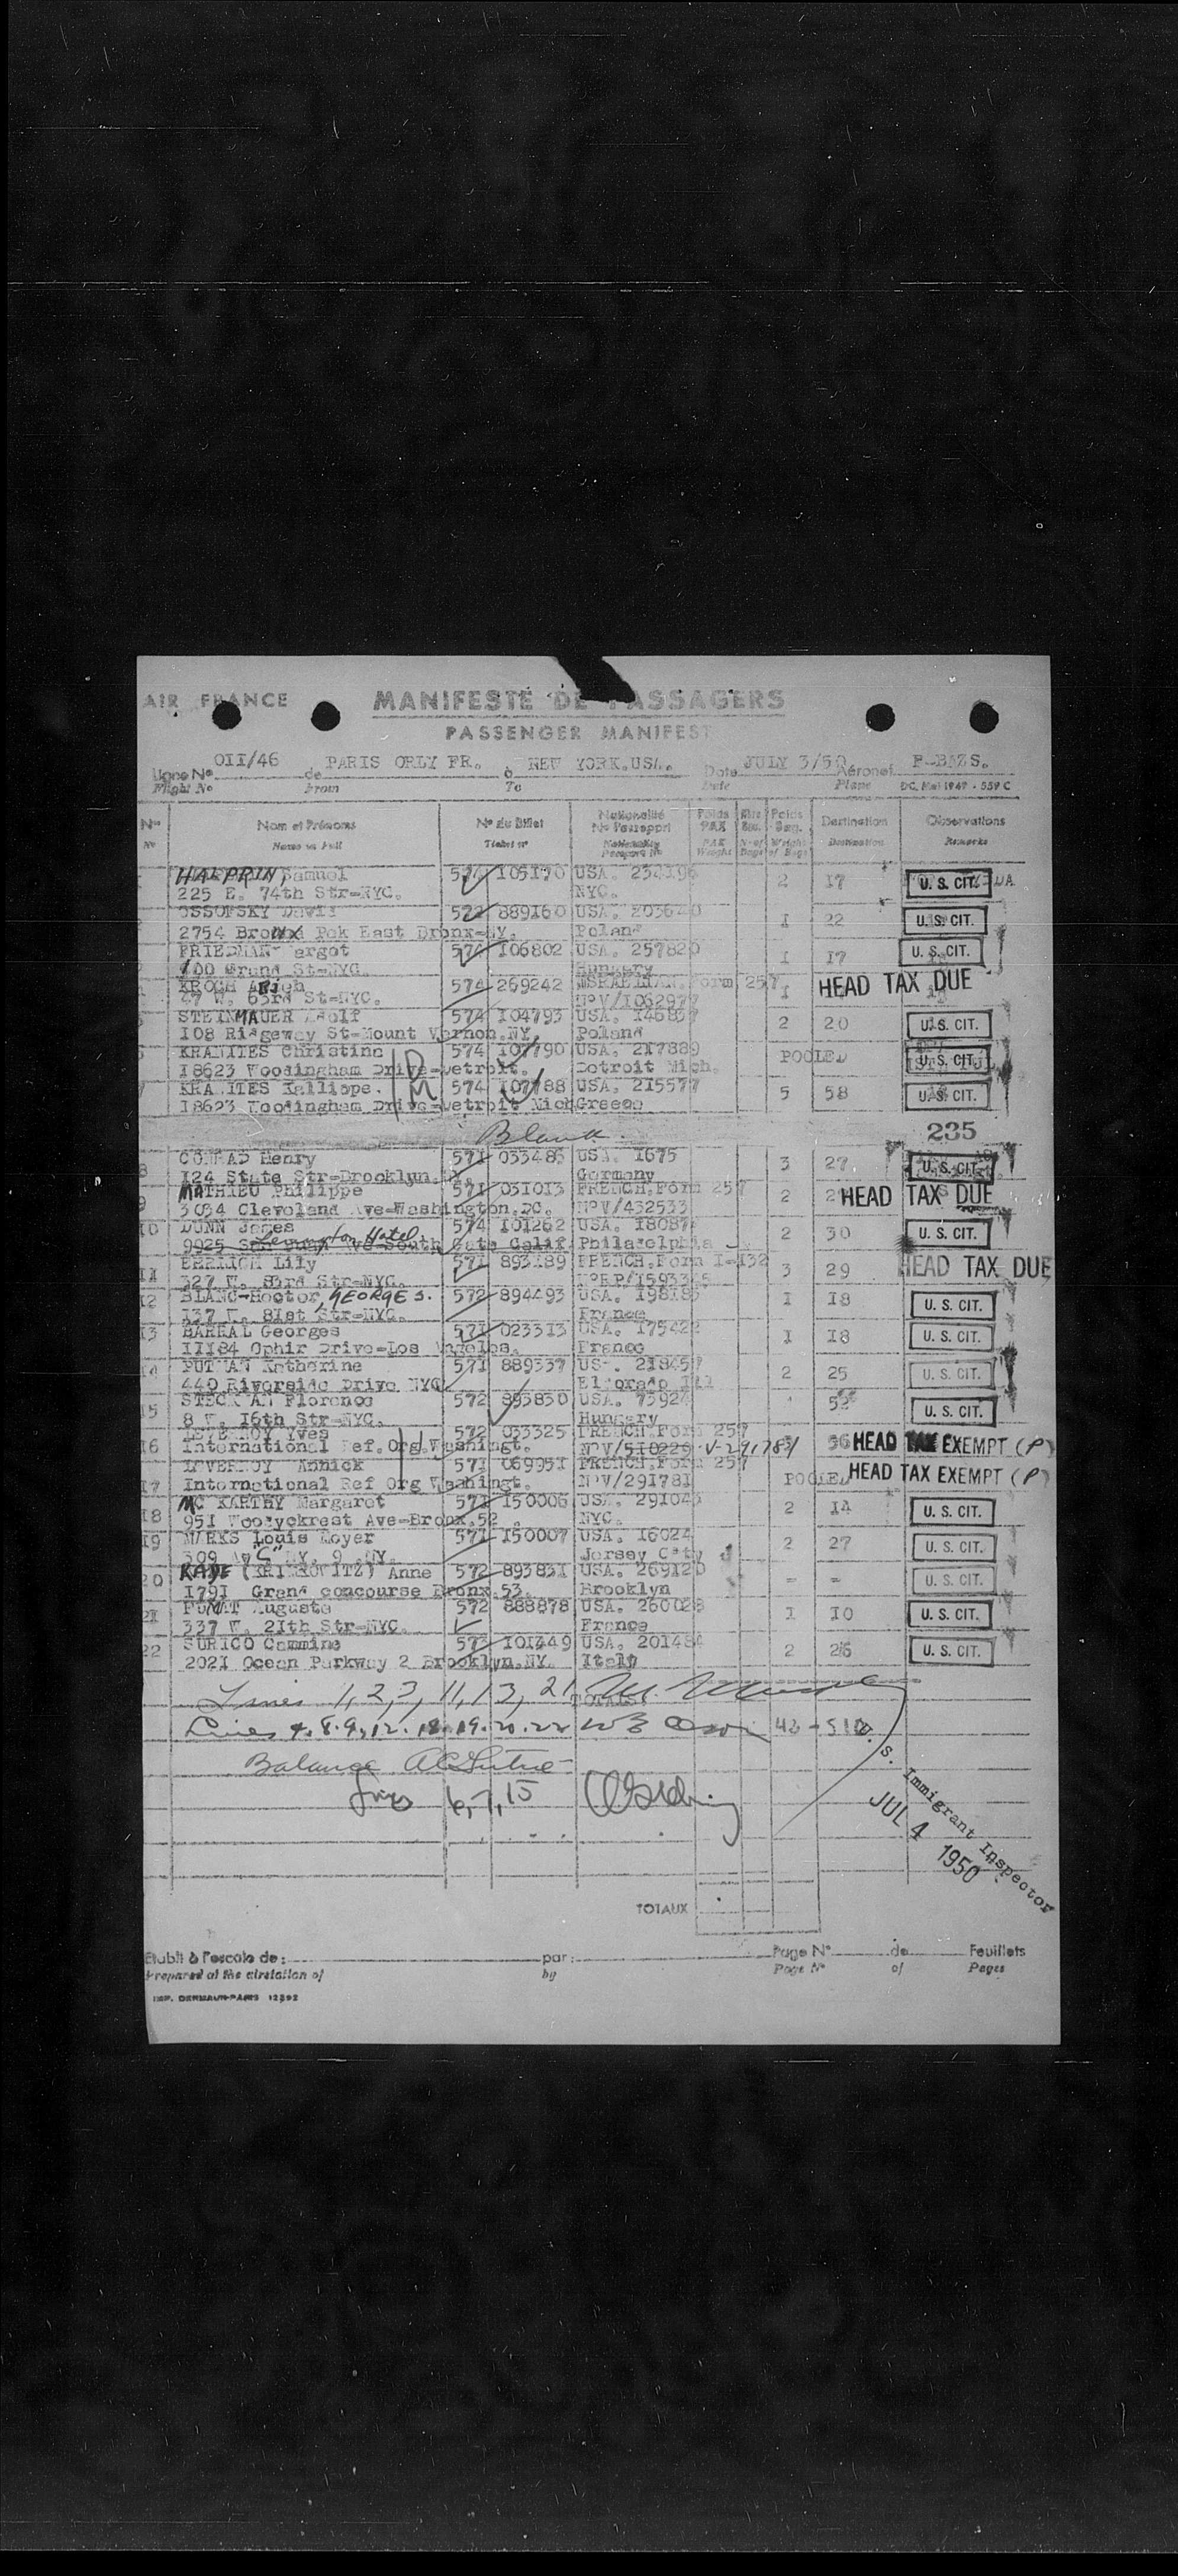 AIR FRANCE MANIFESTE DE PASSAGERS
PASSENGER MANIFEST
Ligne N° OII/46 de PARIS ORLY FR. à NEW YORK.USA. Date JULY 3/50 Aéronef F-BAZS.
Flight N° From To Date Plane DC. Mai 1947 - 559 C
N° Nom et Prénoms N° du Billet Nationalité N° Passeport Poids PAX Nbre Bag. Poids Bag. Destination Observations
N° Name in Full Ticket n° Nationality Passport N° PAX Weight N° of Bags Weight of Bags Destination Remarks
HALPRIN, Samuel 574 105170 USA. 234196 2 17 U. S. CIT.
225 E. 74th Str-NYC. NYC.
OSSOFSKY David 572 889160 USA. 203640 I 22 U. S. CIT.
2754 Bronx Pok East Bronx-NY. Poland
FRIEDMAN Margot 574 106802 USA. 257820 I 17 U. S. CIT.
100 Grand St-NYC. Hungary
KROCH ARieh 574 269242 ISRAELIAN. Form 257 I HEAD TAX DUE
47 W. 63rd St-NYC. N°V/1062977
STEINMAUER Adolf 574 104793 USA. 146857 2 20 U. S. CIT.
108 Ridgeway St-Mount Vernon.NY. Poland
KRANITES Christine 574 107790 USA. 217889 POOLED U. S. CIT.
18623 Woodingham Drive-Detroit. Detroit Mich.
7 KRANITES Kalliope. 574 107788 USA. 215577 5 58 U. S. CIT.
18623 Woodingham Drive-Detroit Mich Greece
Blank. 235
8 CONRAD Henry 571 033486 USA. 1675 3 27 U. S. CIT.
124 State Str-Brooklyn.NY. Germany
9 MATHIEU Philippe 571 051013 FRENCH.Form 257 2 HEAD TAX DUE
3034 Cleveland Ave-Washington.DC. N°V/432533
10 DUNN James 574 101262 USA. 18087 2 30 U. S. CIT.
9925 Lexington Hotel Ave South Gate Calif. Philadelphia
11 EHRLICH Lily 571 893189 FRENCH.Form I-132 3 29 HEAD TAX DUE
327 W. 83rd Str-NYC. N°RP/1593345
12 BLANC-Hoctor, GEORGE S. 572 894493 USA. 198185 I 18 U. S. CIT.
137 W. 81st Str-NYC. France
13 BARRAL Georges 571 023313 USA. 175422 I 18 U. S. CIT.
11184 Ophir Drive-Los Angeles. France
14 PUTMAN Katherine 571 889337 USA. 218457 2 25 U. S. CIT.
440 Riverside Drive NYC Eldorado Ill
15 STECKMAN Florence 572 893830 USA. 73924 52 U. S. CIT.
8 W. 16th Str-NYC. Hungary
16 LEVERNOY Yves 572 033325 FRENCH.Form 257 56 HEAD TAX EXEMPT (P)
International Ref.Org.Washingt. N°V/510229 V-291781
17 LEVERNOY Annick 571 069951 FRENCH.Form 257 POOLED HEAD TAX EXEMPT (P)
International Ref Org Washingt. N°V/291781
18 MC KARTHY Margaret 571 150006 USA. 291043 2 14 U. S. CIT.
951 Woodyckrest Ave-Bronx.52 NYC.
19 MARKS Louis Moyer 571 150007 USA. 16024 2 27 U. S. CIT.
309 Av "C" NY. 9 .NY. Jersey City
20 KAYE (KRINKOVITZ) Anne 572 893831 USA. 269120 - - U. S. CIT.
1791 Grand concourse Bronx.53. Brooklyn
21 FUMAT Auguste 572 888878 USA. 260028 I 10 U. S. CIT.
337 W. 21th Str-NYC. France
22 SURICO Carmine 573 101449 USA. 201484 2 26 U. S. CIT.
2021 Ocean Parkway 2 Brooklyn.NY. Italy
Lines 1,2,3, 11, 13, 21 TOTALS.
Lines 4.8.9.12.18.19.20.22 42 - 510
Balance
Lines 6,7,15
U. S. Immigrant Inspector
JUL 4 1950
TOTAUX
Etabli à l'escale de : par : Page N° de Feuillets
Prepared at the airstation of by Page N° of Pages
IMP. DERMAUR-PARIS 12892